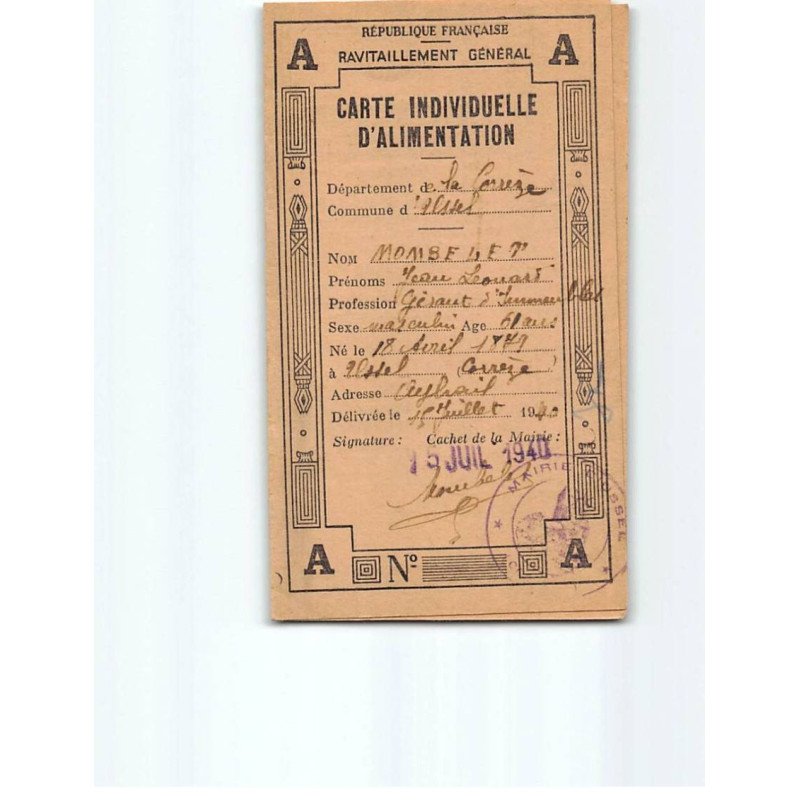 A A
RÉPUBLIQUE FRANÇAISE
RAVITAILLEMENT GÉNÉRAL
CARTE INDIVIDUELLE
D'ALIMENTATION
Département de la Corrèze
Commune d'Ussel
NOM
Prénoms Jean Leonard
Profession Gérant d'Immeubles
Sexe masculin Age 61 ans
Né le 18 Avril 1879
à Ussel (Corrèze)
Adresse
Délivrée le 15 Juillet 1940
Signature : Cachet de la Mairie :
15 JUIL 1940
MAIRIE USSEL
A Nº A